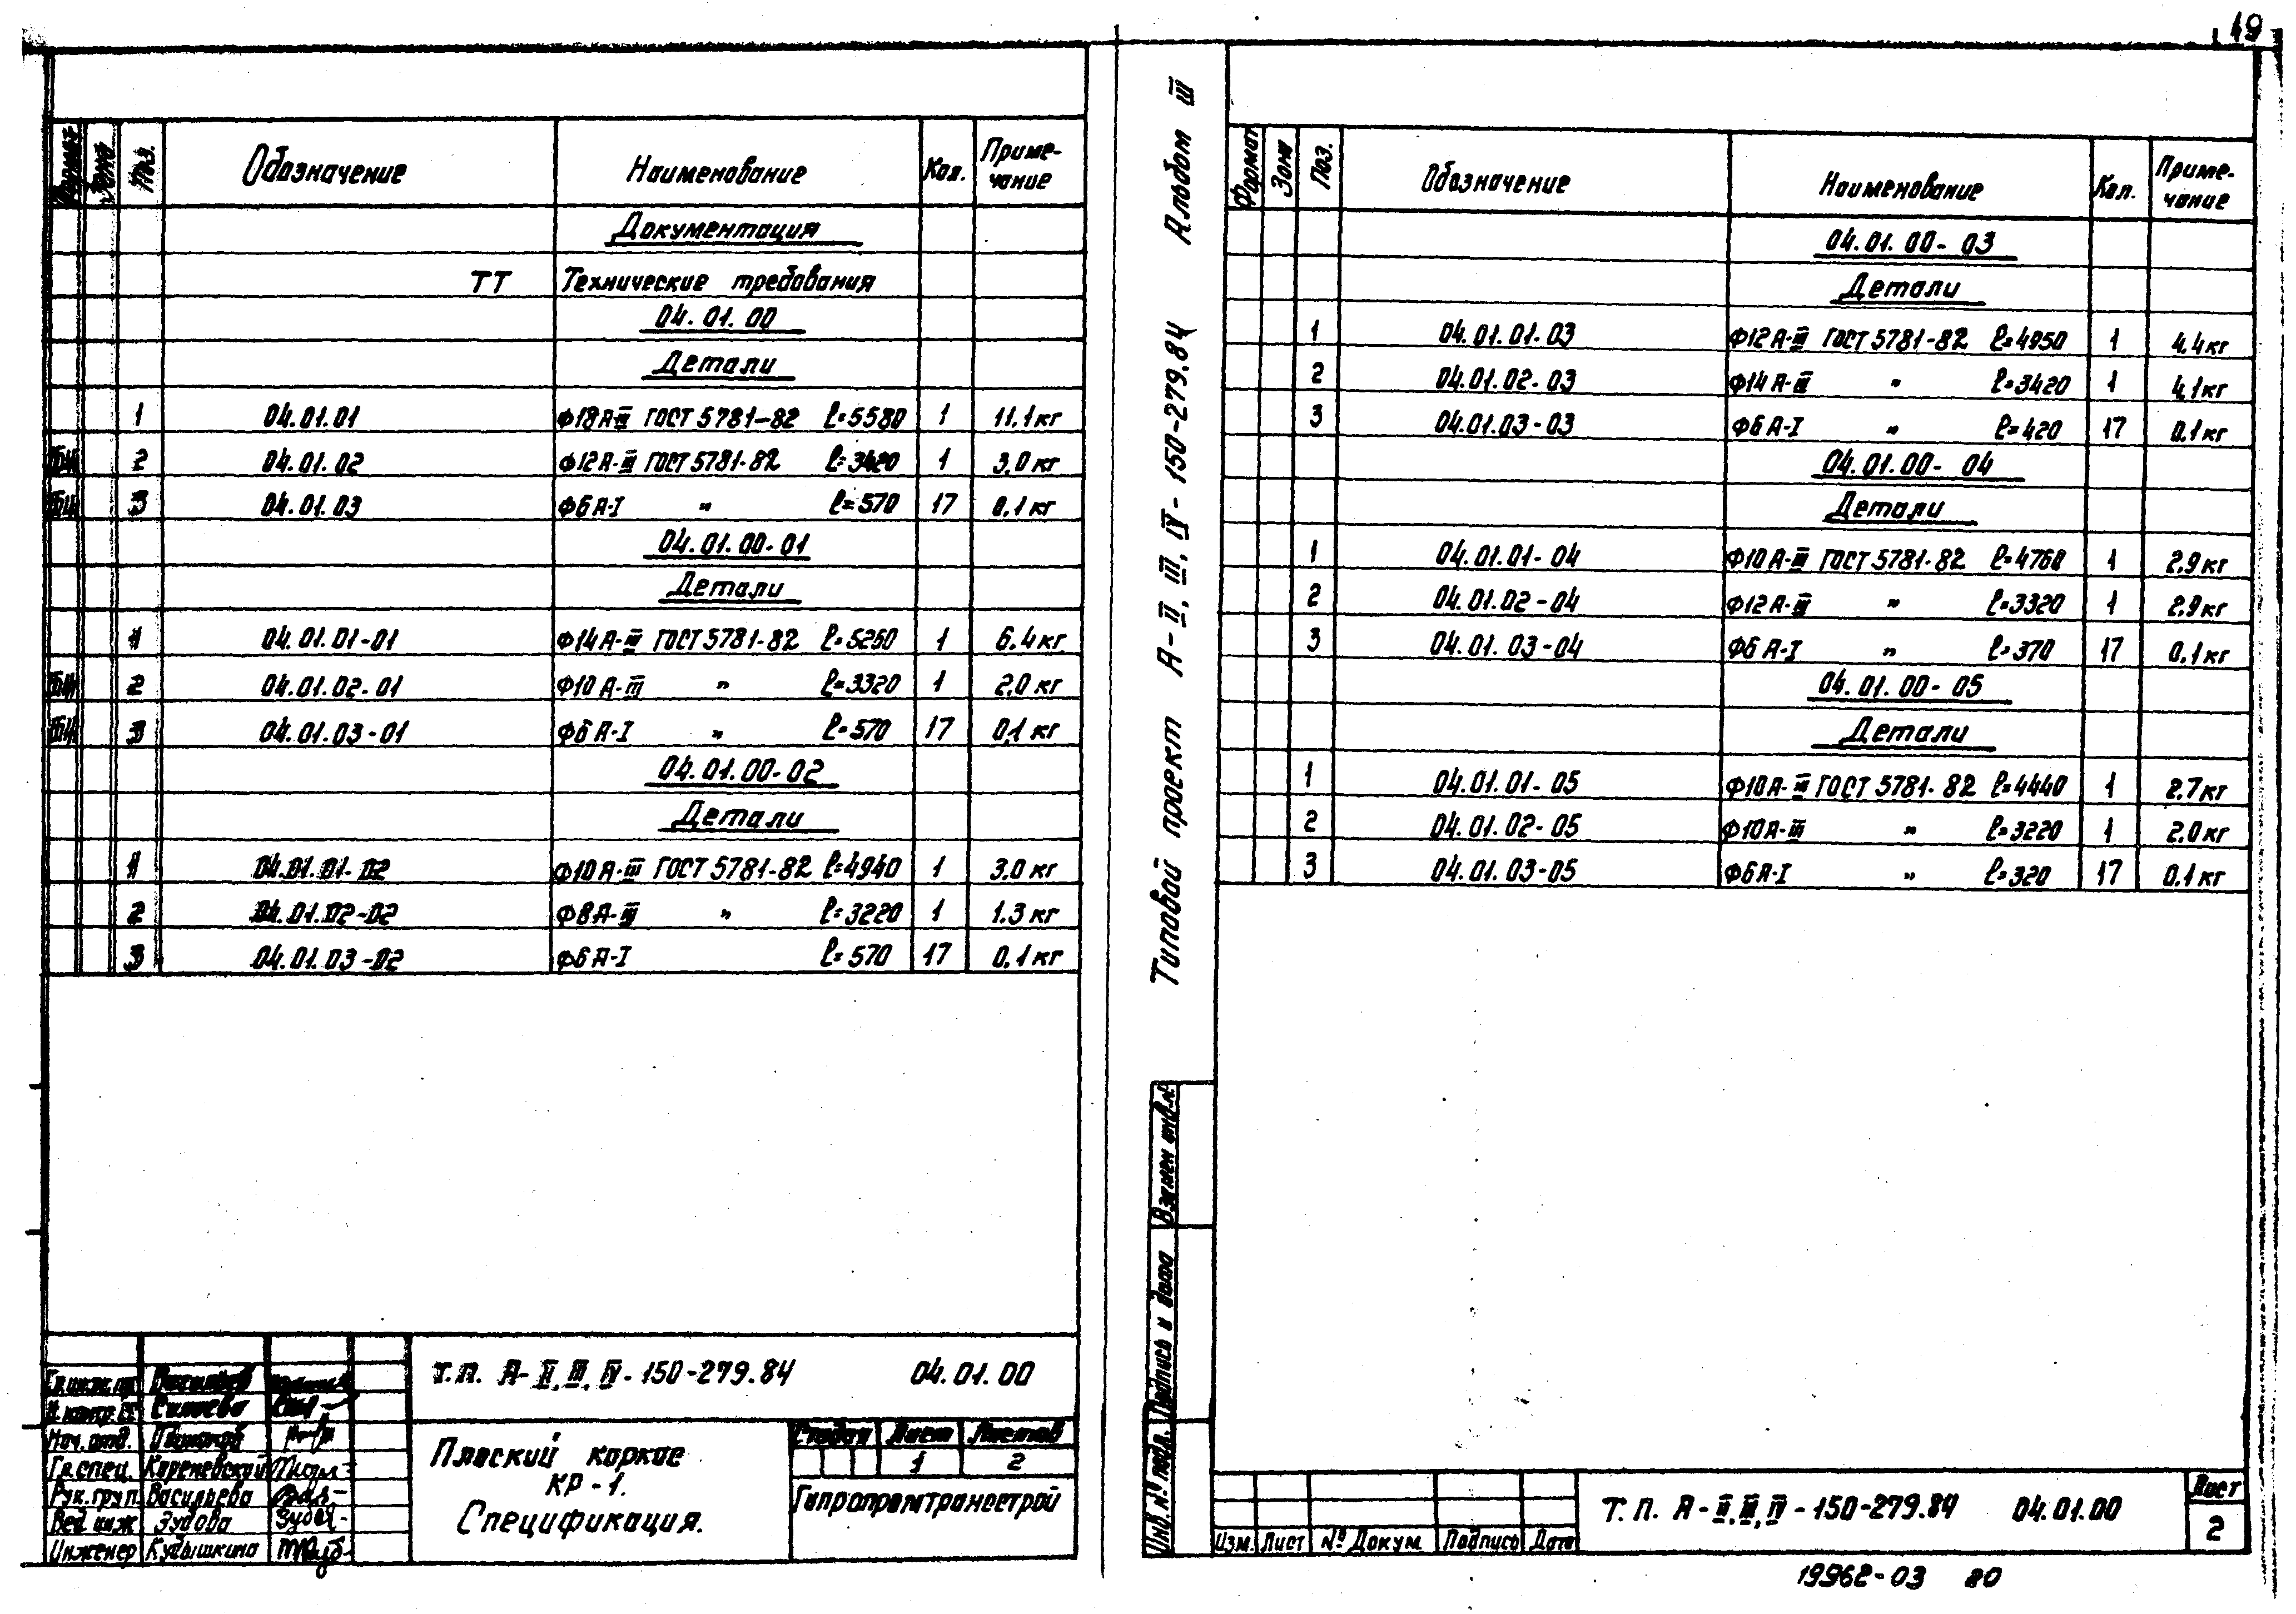 19
Формат Зона Поз. Обозначение Наименование Кол. Приме-
чание
Документация
ТТ Технические требования
04.01.00
Детали
1 04.01.01 Ф18А-III ГОСТ 5781-82 ℓ=5580 1 11,1кг
БЧ 2 04.01.02 Ф12А-III ГОСТ 5781-82 ℓ=3420 1 3,0кг
БЧ 3 04.01.03 Ф6А-I " ℓ=570 17 0,1кг
04.01.00-01
Детали
1 04.01.01-01 Ф14А-III ГОСТ 5781-82 ℓ=5260 1 6.4кг
БЧ 2 04.01.02-01 Ф10А-III " ℓ=3320 1 2,0кг
БЧ 3 04.01.03-01 Ф6А-I " ℓ=570 17 0,1кг
04.01.00-02
Детали
1 04.01.01-02 Ф10А-III ГОСТ 5781-82 ℓ=4940 1 3.0кг
2 04.01.02-02 Ф8А-III " ℓ=3220 1 1.3кг
3 04.01.03-02 Ф6А-I ℓ=570 17 0,1кг
Т.П. А-II,III,IV-150-279.84 04.01.00
Гл.инж.пр.
Н.контр.
Нач.отд.
Гл.спец. Кореневский
Рук.груп. Васильева
Вед.инж Зудова
Инженер Кубышкина
Плоский каркас
КР-1.
Спецификация.
Стадия Лист Листов
1 2
Гипропромтрансстрой
Типовой проект А-II, III, IV-150-279.84 Альбом III
Формат Зона Поз. Обозначение Наименование Кол. Приме-
чание
04.01.00-03
Детали
1 04.01.01-03 Ф12А-III ГОСТ 5781-82 ℓ=4950 1 4,4кг
2 04.01.02-03 Ф14А-III " ℓ=3420 1 4,1кг
3 04.01.03-03 Ф6А-I " ℓ=420 17 0,1кг
04.01.00-04
Детали
1 04.01.01-04 Ф10А-III ГОСТ 5781-82 ℓ=4760 1 2,9кг
2 04.01.02-04 Ф12А-III " ℓ=3320 1 2,9кг
3 04.01.03-04 Ф6А-I " ℓ=370 17 0,1кг
04.01.00-05
Детали
1 04.01.01-05 Ф10А-III ГОСТ 5781-82 ℓ=4440 1 2.7кг
2 04.01.02-05 Ф10А-III " ℓ=3220 1 2.0кг
3 04.01.03-05 Ф6А-I " ℓ=320 17 0.1кг
Инв.№ подл. Подпись и дата Взамен инв.№
Изм. Лист № Докум Подпись Дата
Т.П. А-II,III,IV-150-279.84 04.01.00
Лист
2
19962-03 20